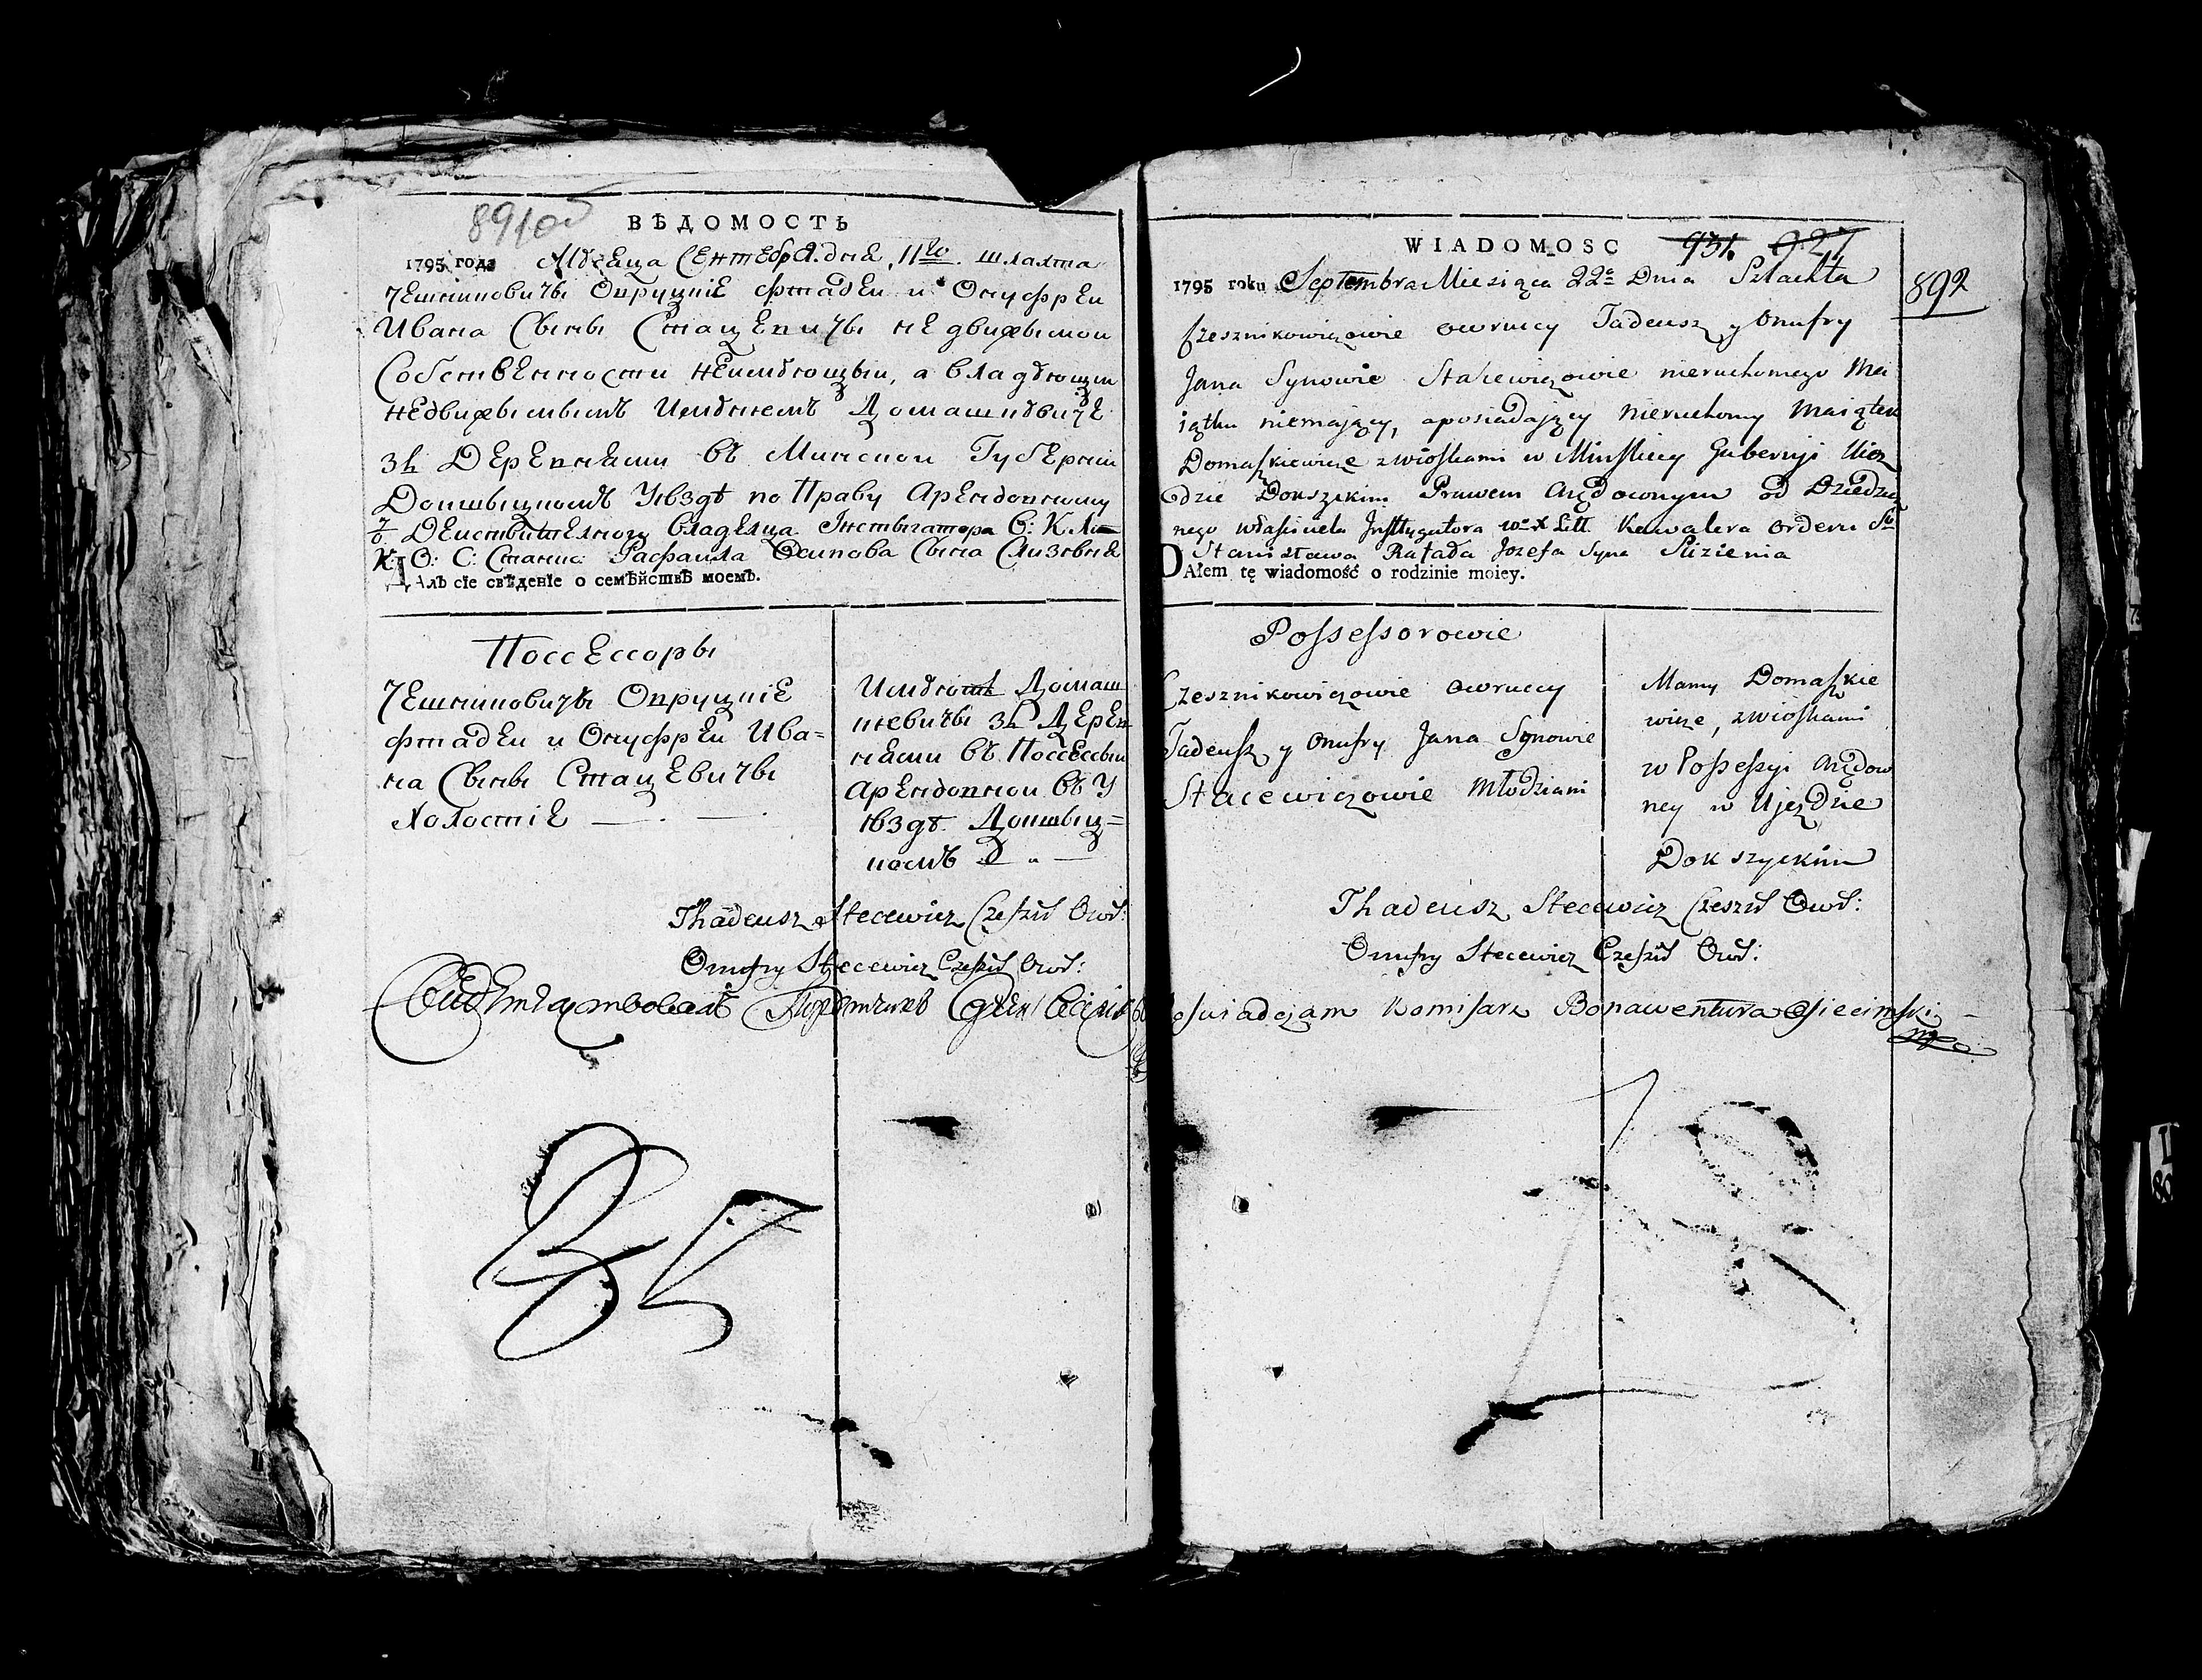 891 об
ВѢДОМОСТЬ
1795 года Мѣсеца Сентебра дня 11го шляхта
Чешниковичы Овруцкіе Фтадеи и Онуфреи
Ивана Сыны Стацевичы недвижымои
Собственности неимѣющыи, а владѣющии
недвижымымъ Имѣнемъ Домашкѣвиче
зъ Деревнями въ Минскои Губерніи
Докшыцкомъ Уѣздѣ по Праву Арендовному
Деиствителного владелца Інстыгатора В: К. Ли
К: О: С: Станис: Рафаила Осипова Сына Слизѣня
Далъ сіе свѣденіе о семѣйствѣ моемъ.
Поссессоры
Чешниковичы Овруцкіе
Фтадеи и Онуфреи Ива=
на Сыны Стацевичы
Холостіе
Имѣю Домаш
кевичы зъ Дерев
нями въ Поссессыи
Арендовнои въ У
ѣздѣ Докшыц=
комъ
Thadeusz Stecewicz Czeszń Owr:
Onufry Stecewicz Czeszń Owr:
Свидѣтелствовалъ
WIADOMOSC
931 927
892
1795 roku Septembra Miesiąca 22o Dnia Szlachta
Czesznikowiczowie owruccy Tadeusz y Onufry
Jana Synowie Stacewiczowie nieruchomego Ma
iątku niemaiący, aposiadaiący Nieruchomy Maiątek
Domaszkiewicze zwioskami w Minskiey Gubernji Uiez
dzie Dokszyckim Prawem Arędownym od Dziedzicz
nego właściciela Jnstygatora wo X Litt Kawalera Orderu So
Stanisława Rafała Jozefa Syna Slizienia
DAłem tę wiadomość o rodzinie moiey.
Possessorowie
Czesznikowiczowie owruccy
Tadeusz y Onufry Jana Synowie
Stacewiczowie Młodziani
Mamy Domaszkie
wicze, zwioskami
w Possessyi Arędow
ney w Ujezdzie
Dokszyckim
Thadeusz Stecewicz Czeszń Owr:
Onufry Stecewicz Czeszń Owr:
Poswiadczam Komisarz Bonawentura Osiecimski
mp